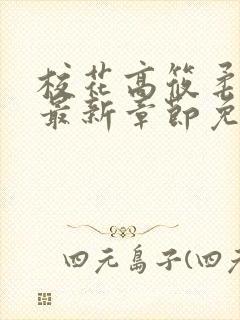 校花高筱柔
最新章节免
四元岛子(四元